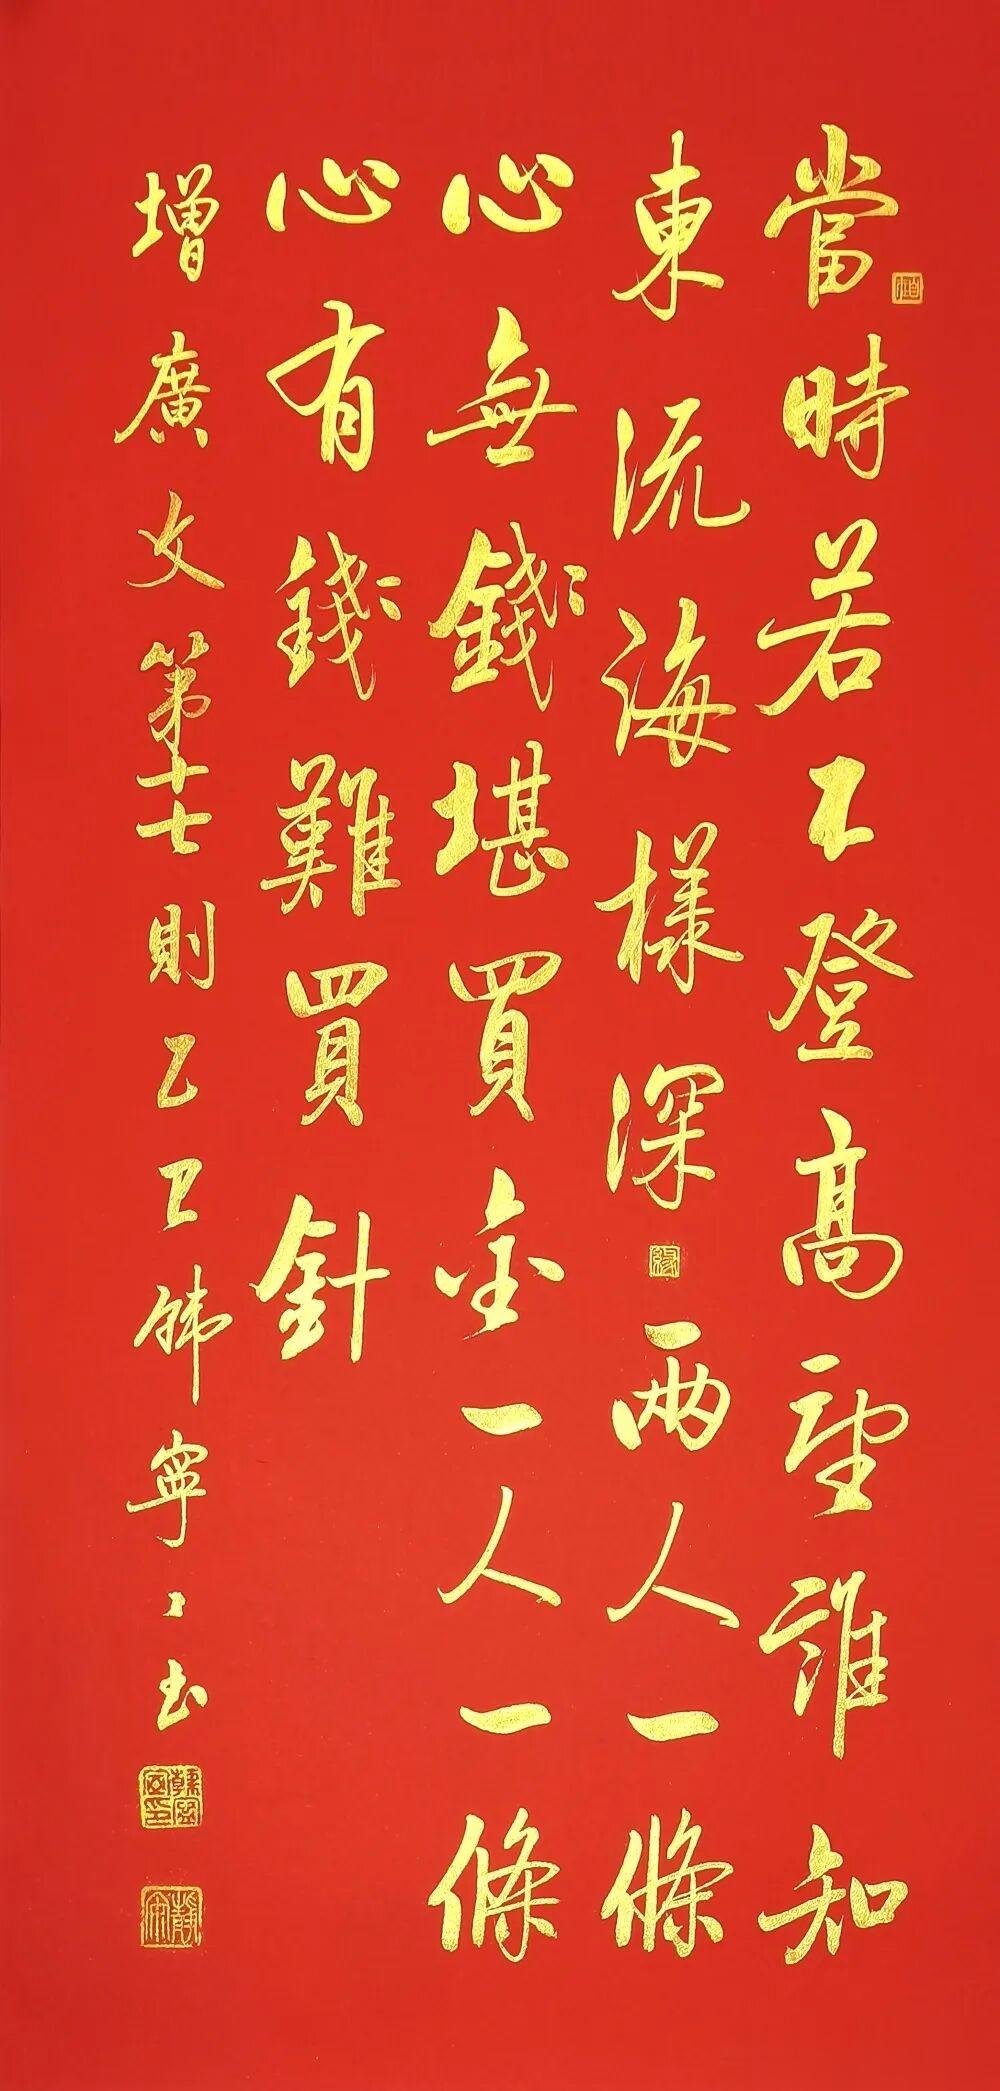 當時若不登高望誰知
東流海樣深兩人一條
心無錢堪買金一人一條
心有錢難買針
增廣文第十七則乙巳韓寧〻書